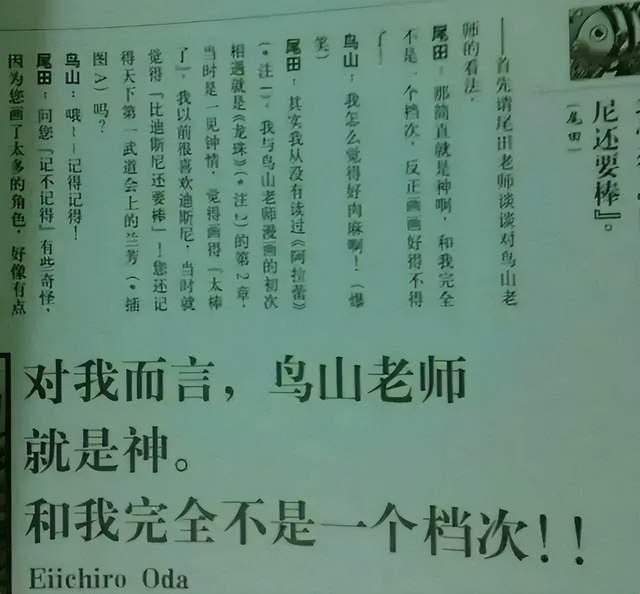 尼还要棒』。
（尾田）
——首先请尾田老师谈谈对鸟山老
师的看法。
尾田：那简直就是神啊，和我完全
不是一个档次，反正画画好得不得
了——
鸟山：我怎么觉得好肉麻啊！（爆
笑）
尾田：其实我从没有读过《阿拉蕾》
（*注1），我与鸟山老师漫画的初次
相遇就是《龙珠》（*注2）的第2章，
当时是一见钟情，觉得画得『太棒
了』。我以前很喜欢迪斯尼，当时就
觉得『比迪斯尼还要棒』！您还记
得天下第一武道会上的兰芳（*插
图A）吗？
鸟山：哦——记得记得！
尾田：问您『记不记得』有些奇怪，
因为您画了太多的角色，好像有点
对我而言，鸟山老师
就是神。
和我完全不是一个档次！！
Eiichiro Oda